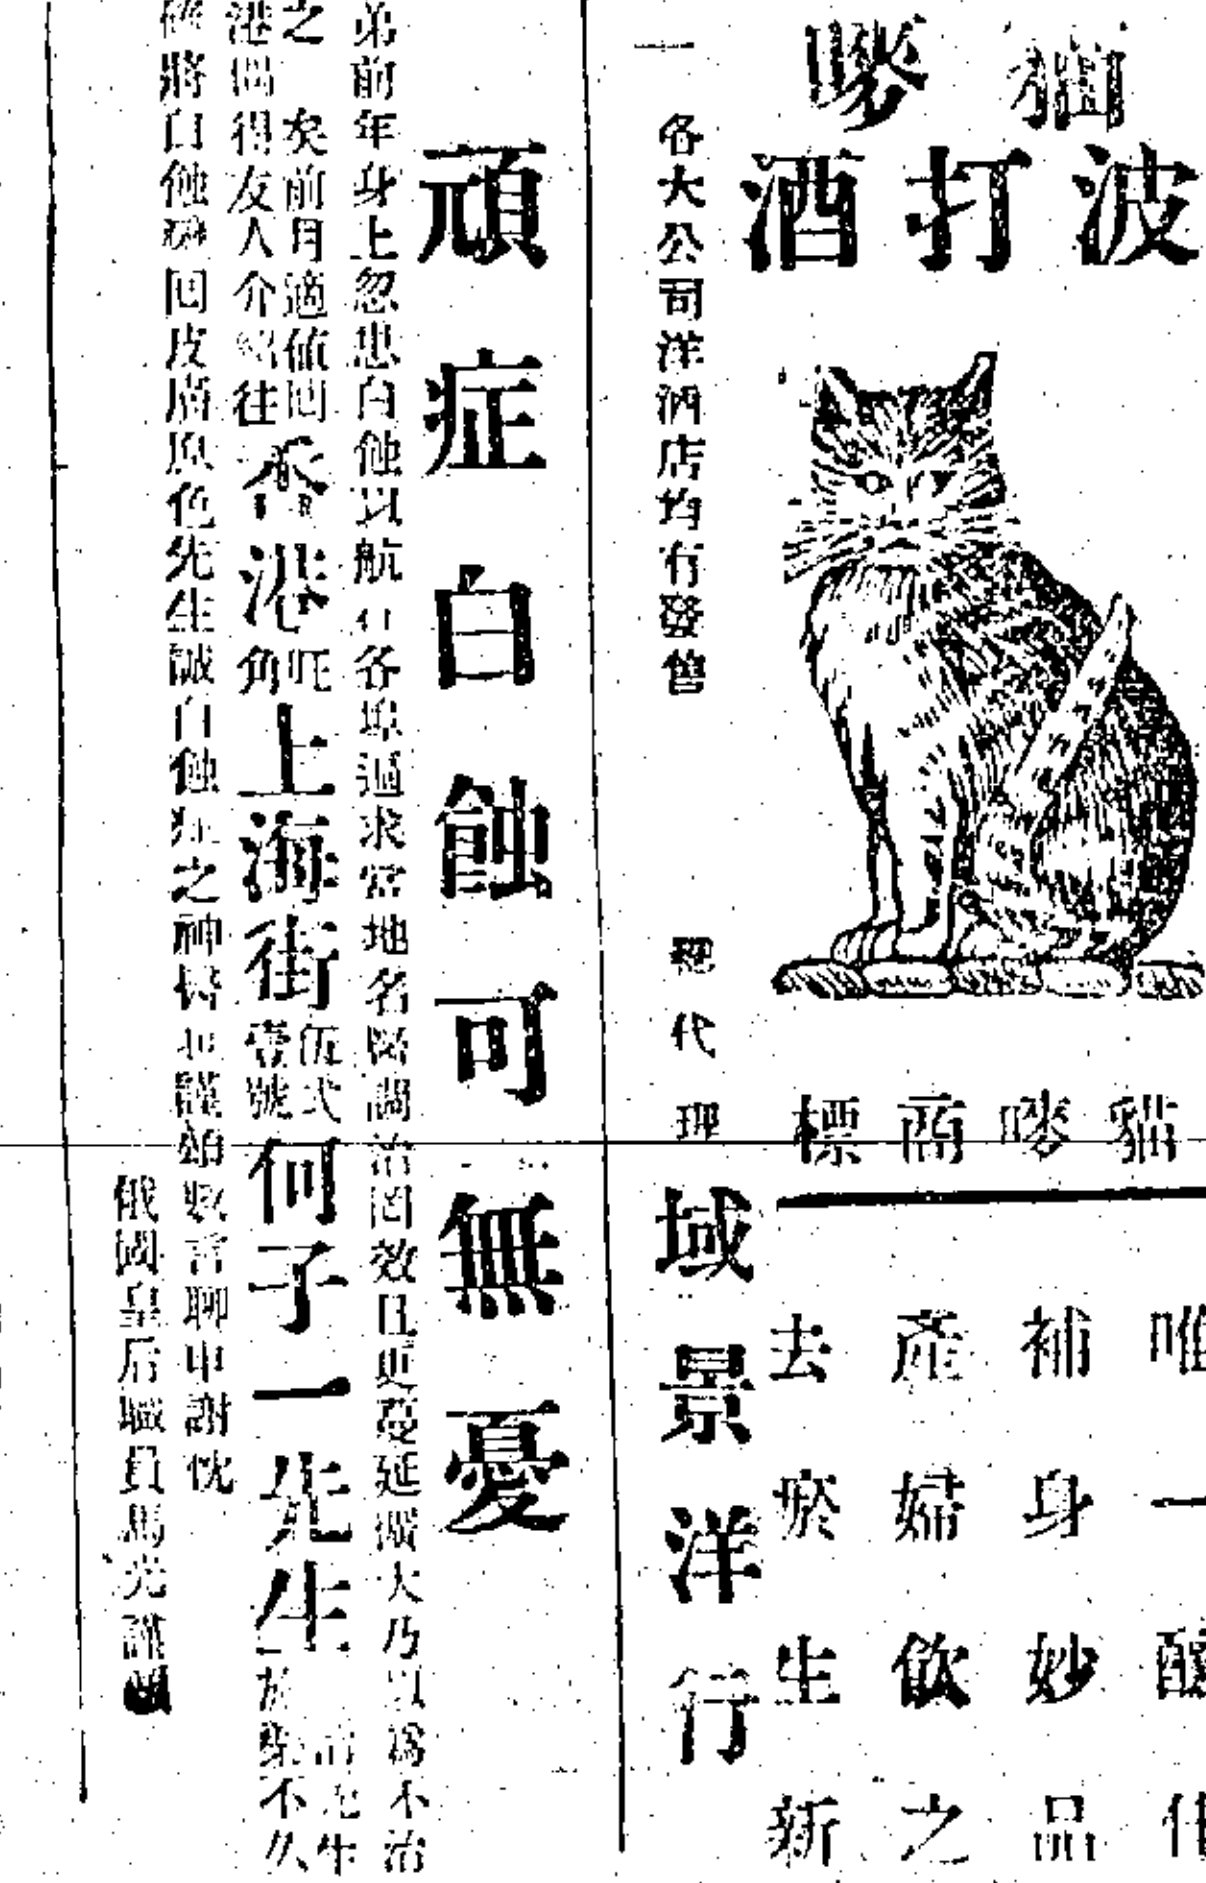 貓嘜
波打酒
貓嘜商標
唯一釀
補身妙品
產婦飲之
去瘀生新
各大公司洋酒店均有發售
總代理
域景洋行
頑症白蝕可無憂
弟前年身上忽患白蝕以航行各埠過求當地名醫調治罔效且更蔓延擴大乃以為不治
之 矣前月適值回
港得友人介紹往
香港
旺角
上海街
伍弍壹號
何子一先生
先生
不久
將白蝕 回皮膚原色先生誠白蝕症之神醫也謹頌數言聊申謝忱
俄國皇后職員馬光謹頌